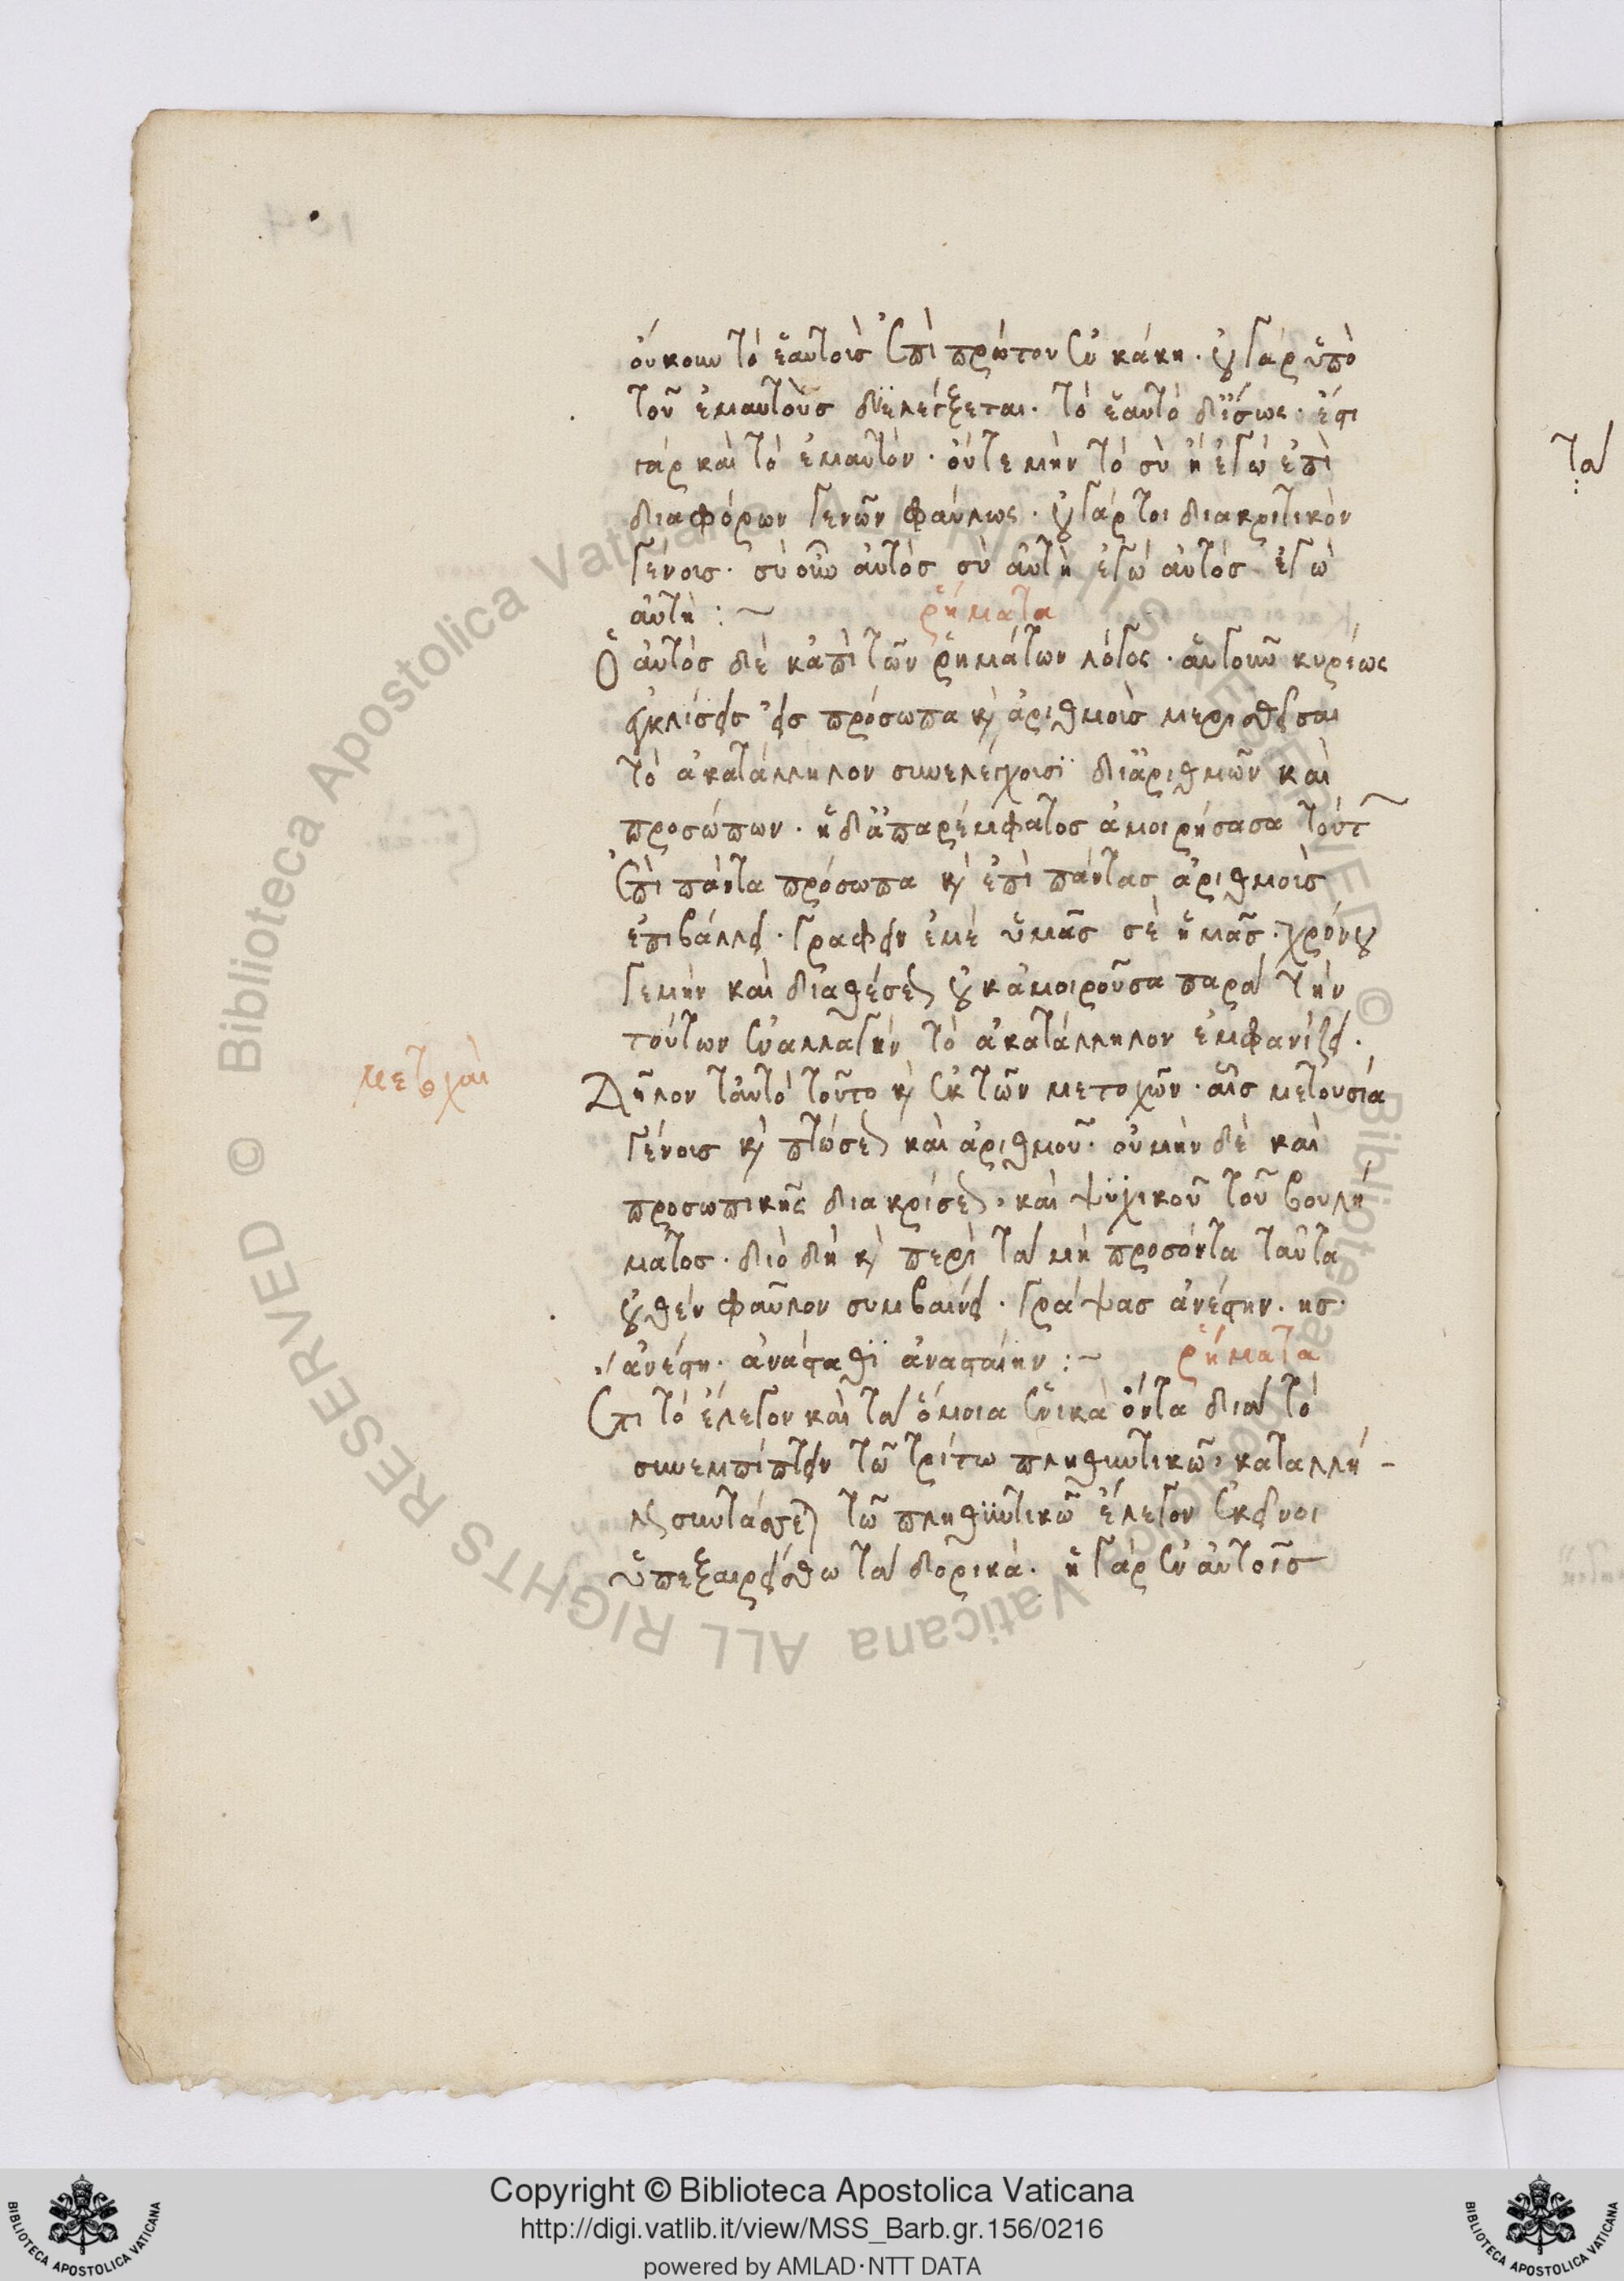 οὐκοῦν τὸ ἑαυτοὺς ἐπὶ πρώτου ἐν κάκη· οὐ γὰρ ὑπὸ
τοῦ ἐμαυτοὺς διελέγξεται· τὸ ἑαυτὸ δ' ἴσως· ἔστι
γὰρ καὶ τὸ ἐμαυτόν· οὔτε μὴν τὸ σὺ ἢ ἐγὼ ἐπὶ
διαφόρων γενῶν φαύλως· οὐ γάρ τοι διακριτικὸν
γένους· σὺ οὖν αὐτὸς σὺ αὐτὴ ἐγὼ αὐτὸς ἐγὼ
αὐτή :~ ῥήματα
Ὁ αὐτὸς δὲ κἀπὶ τῶν ῥημάτων λόγος· αἱ γοῦν κυρίως
ἐγκλίσεις εἰς πρόσωπα καὶ ἀριθμοὺς μερισθεῖσαι
τὸ ἀκατάλληλον συνελέγχουσι δι' ἀριθμῶν καὶ
προσώπων· ἡ δ' ἀπαρέμφατος ἀμοιρήσασα τούτ
ἐπὶ πάντα πρόσωπα καὶ ἐπὶ πάντας ἀριθμοὺς
ἐπιβάλλει· γράφειν ἐμὲ ὑμᾶς σὲ ἡμᾶς· χρόνου
γε μὴν καὶ διαθέσεως οὐκ ἀμοιροῦσα παρὰ τὴν
τούτων ἐναλλαγὴν τὸ ἀκατάλληλον ἐμφανίζει·
μετοχαὶ
Δῆλον ταὐτὸ τοῦτο καὶ ἐκ τῶν μετοχῶν· αἷς μετουσία
γένους καὶ πτώσεως καὶ ἀριθμοῦ· οὐ μὴν δὲ καὶ
προσωπικῆς διακρίσεως, καὶ ψυχικοῦ τοῦ βουλή
ματος· διὸ δὴ καὶ περὶ τὰ μὴ προσόντα ταῦτα
οὐθὲν φαῦλον συμβαίνει· γράψας ἀνέστην· ης·
ἀνέστη· ἀνάστηθι ἀνασταίην :~ ῥήματα
Ἔτι τὸ ἔλεγον καὶ τὰ ὅμοια ἑνικὰ ὄντα διὰ τὸ
συνεμπίπτειν τῷ τρίτῳ πληθυντικῷ, καταλλή-
λως συντάσσεται τῷ πληθυντικῷ ἔλεγον ἐκεῖνοι
ὑπεξαιρείσθω τὰ δωρικά· ἡ γὰρ ἐν αὐτοῖς
τὰ
Copyright © Biblioteca Apostolica Vaticana
http://digi.vatlib.it/view/MSS_Barb.gr.156/0216
powered by AMLAD·NTT DATA
BIBLIOTECA APOSTOLICA VATICANA
BIBLIOTECA APOSTOLICA VATICANA
© Biblioteca Apostolica Vaticana ALL RIGHTS RESERVED